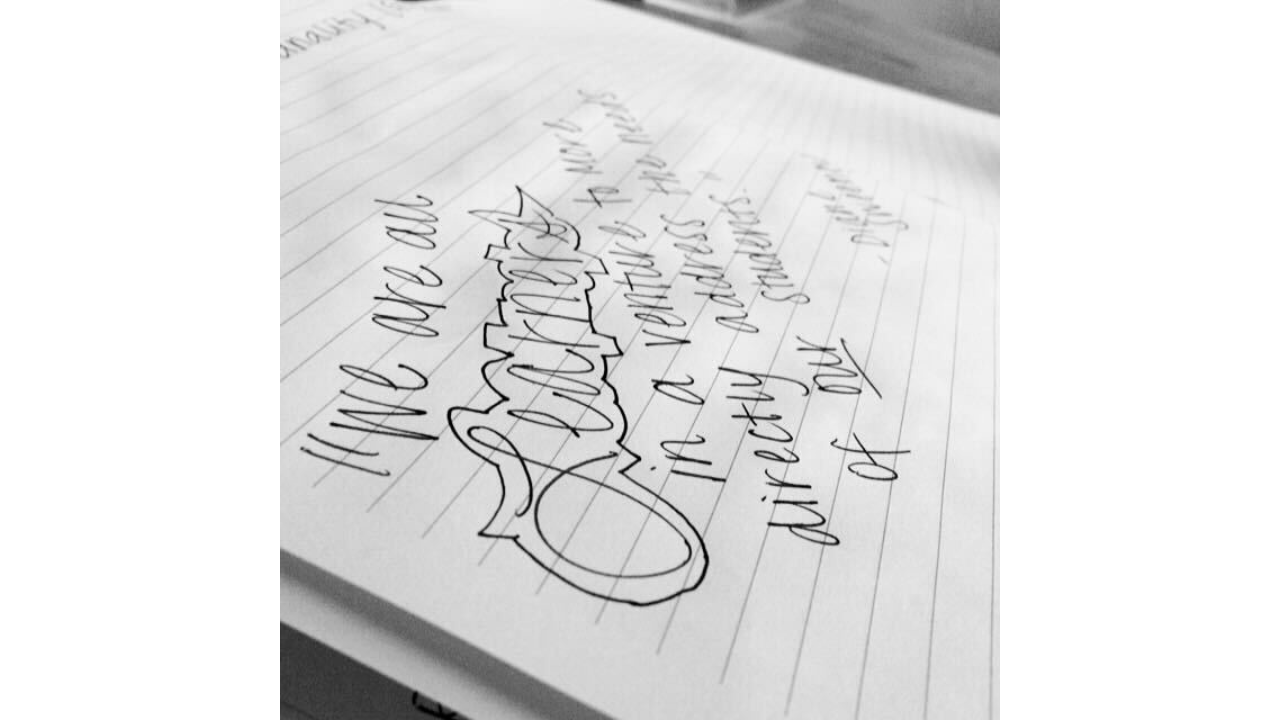 "We are all
Learners
in a venture to
directly address the needs
of our students.